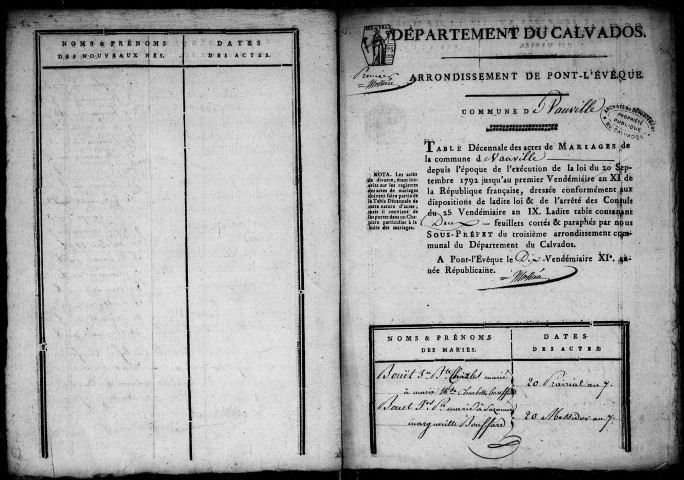 NOMS & PRÉNOMS
DES NOUVEAUX NÉS.
DATES
DES ACTES.
DÉPARTEMENT DU CALVADOS.
Premier
ARRONDISSEMENT DE PONT-L'ÉVÊQUE.
COMMUNE DE Vauville
ARCHIVES DU DÉPARTEMENT
PROPRIÉTÉ
PUBLIQUE
DU CALVADOS
TABLE Décennale des actes de MARIAGES de
la commune de Vauville
depuis l'époque de l'exécution de la loi du 20 Sep-
tembre 1792 jusqu'au premier Vendémiaire an XI de
la République française, dressée conformément aux
dispositions de ladite loi & de l'arrêté des Consuls
du 25 Vendémiaire an IX. Ladite table contenant
Deux feuillets cottés & paraphés par nous
SOUS-PRÉFET du troisième arrondissement com-
munal du Département du Calvados.
A Pont-l'Evêque le Dix Vendémiaire XIe. an-
née Républicaine.
NOTA. Les actes
de divorce, étant ins-
crits sur les registres
des actes de mariages
doivent faire partie de
la Table Décennale de
cette nature d'actes;
mais il convient de
les porter dans un Cha-
pitre particulier à la
suite des mariages.
NOMS & PRÉNOMS
DES MARIÉS.
DATES
DES ACTES
Bouët Jn Bte Charles marié
à marie Charlotte Bouffard
20 Prairial an 7.
Bouet marié à Suzanne
marguerite Bouffard
20 Messidor an 7.